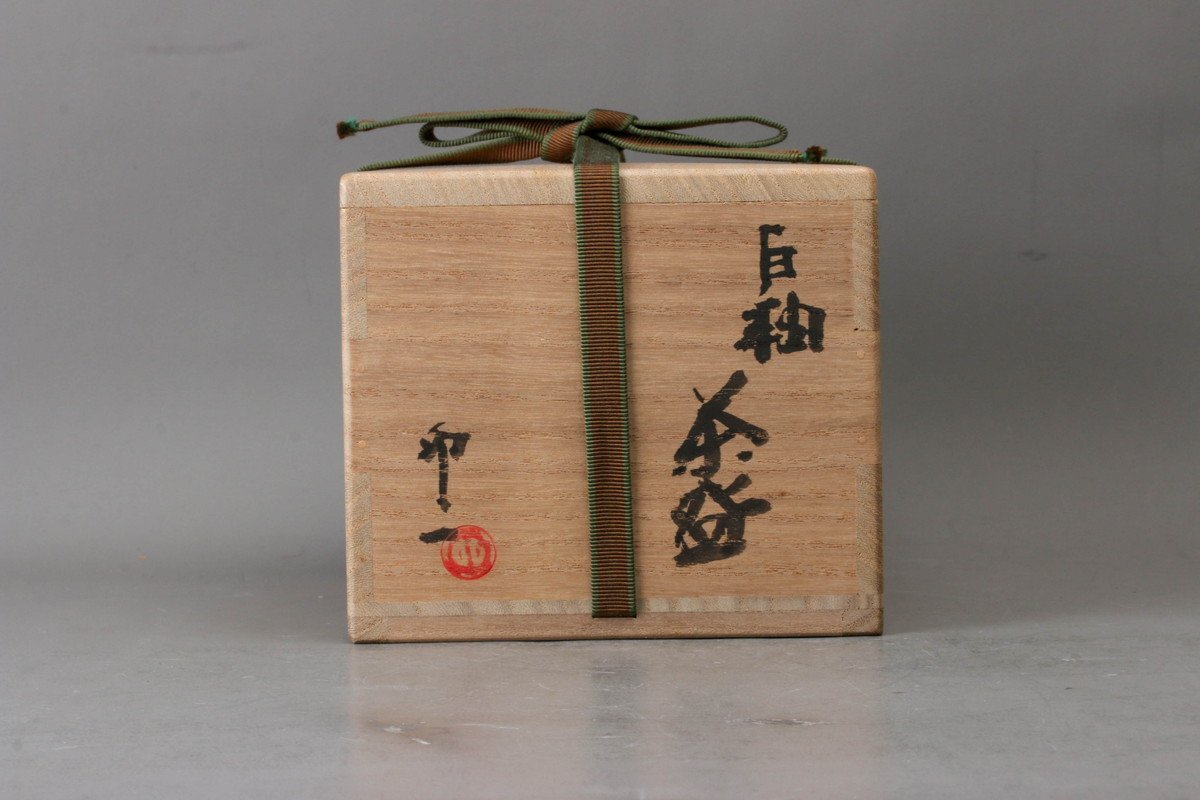 白釉
茶盌
卯一
卯